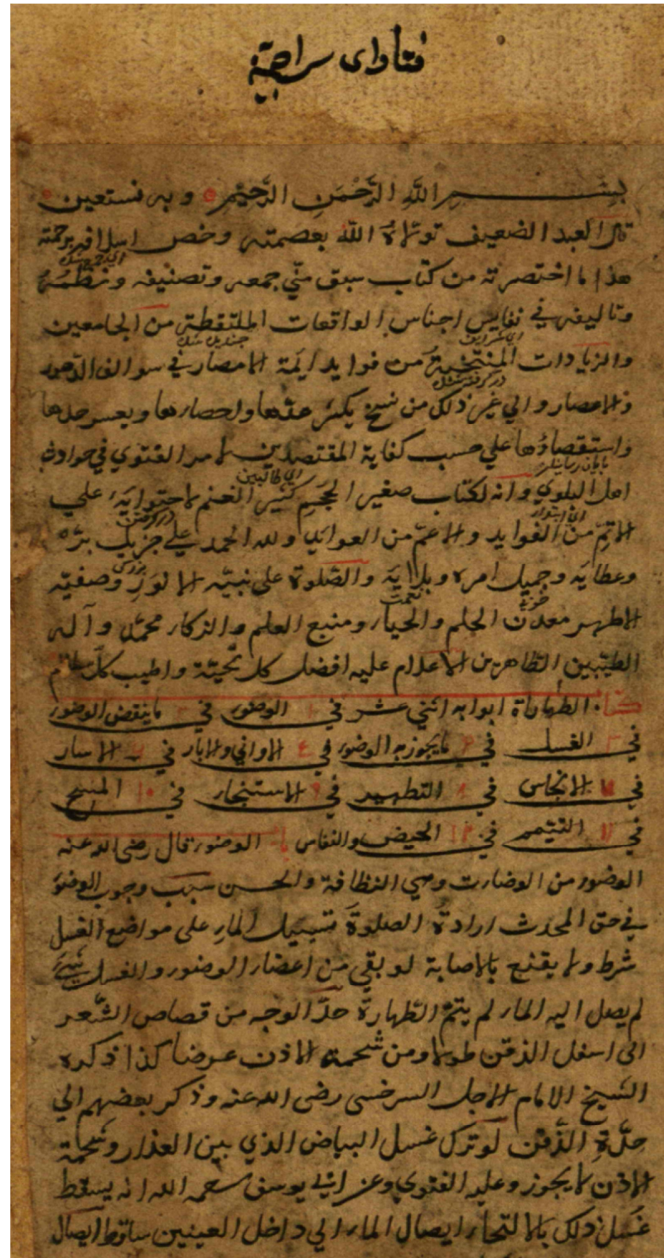 فتاوای سراجیة
بسم اللَّهِ الرَّحْمَنِ الرَّحِيْمِ وبه نستعین
قال العبد الضعیف تولاه اللَّه بعصمته وخص اسلافه برحمته
هذا ما اختصرته من كتاب سبق منّي جمعه وتصنيفه ونظمه
وتاليفه في نفايس اجناس الواقعات الملتقطة من الجامعين
والزيادات المنتخبة من فوايد ايمة الامصار في سوالف الدهور
والاعصار والي غير ذلك من نسخ يكثر عدّها واحصارها ويعسر حدها
واستقصاؤها علي حسب كفاية المقتصدين لامر الفتوي في حوادث
اهل البلوي وانه لكتاب صغير الحجم كثير الغنم لاحتوايه علي
الاتمّ من الفوايد والاعمّ من العوائد ولله الحمد علي جزيل برّه
وعطايه وجميل امره وبلايه والصّلوة علي نبيّه وصفيّه
الاطهر معدن الحلم والحياء ومنبع العلم والذكاء محمّد وآله
الطيّبين الطاهرين الاعلام عليه افضل كل تحيّتة واطيب كلّ سلام
كتاب الطهارة ابوابه اثني عشر في الوضوء في ماينقض الوضوء
في الغسل في مايجوز به الوضوء في الاواني والابار في الاسار
في الانجاس في التطهير في الاستنجاء في المسح
في التيمم في الحيض والنفاس باب الوضوء قال رضى الله عنه
الوضوء من الوضاءت وهي النظافة والحسن سبب وجوب الوضوء
في حق المحدث ارادة الصلوة تسييل الماء على مواضع الغسل
شرط ولا يقنع بالاصابة لو بقي من اعضاء الوضوء والغسل شيء
لم يصل اليه الماء لم يتمّ الطهارة حدّ الوجه من قصاص الشّعر
الى اسفل الذقن طولا ومن شحمة الاذن عرضا كذا ذكره
الشيخ الامام الاجل السرخسى رضى الله عنه وذكر بعضهم الي
حدّة الذّقن لو ترك غسل البياض الذي بين العذار وشحمة
الاذن لا يجوز وعليه الفتوي وعن ابي يوسف رحمه الله انه يسقط
غسل ذلك بالالتحاء ايصال الماء الي داخل العينين ساقط ايصال